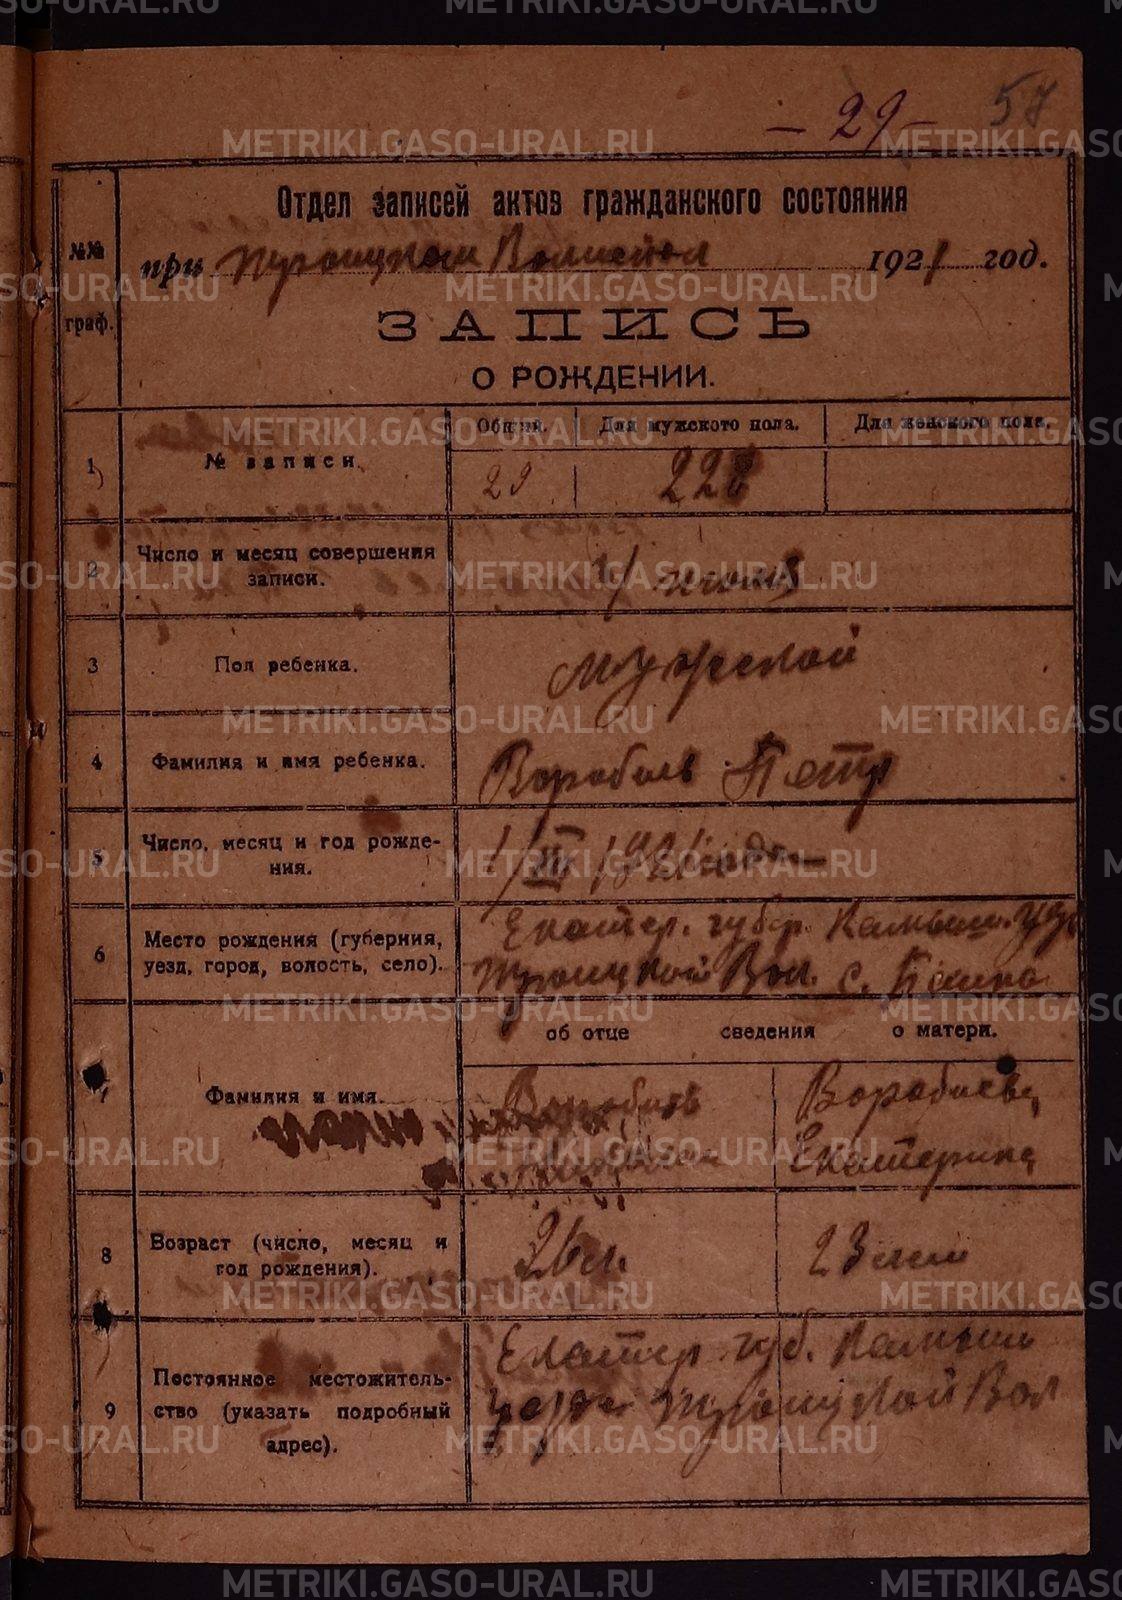 - 29 -
57
Отдел записей актов гражданского состояния
№№ граф.
при Троицком Волисполк 1921 год.
ЗАПИСЬ
О РОЖДЕНИИ.
1 № записи. Общий. Для мужского пола. Для женского пола.
29
2 Число и месяц совершения записи.
3 Пол ребенка. мужской
4 Фамилия и имя ребенка. Воробьев Петр
5 Число, месяц и год рождения. 1921 года
6 Место рождения (губерния, уезд, город, волость, село). Екатер. губер. Камышл. уез
Троицкой Вол. с.
об отце сведения о матери.
Фамилия и имя. Воробьев Воробьева
Екатерина
8 Возраст (число, месяц и год рождения). 26 л. 23 лет
9 Постоянное местожительство (указать подробный адрес). Екатер губ. Камышл
уезда Троицкой Вол
METRIKI.GASO-URAL.RU